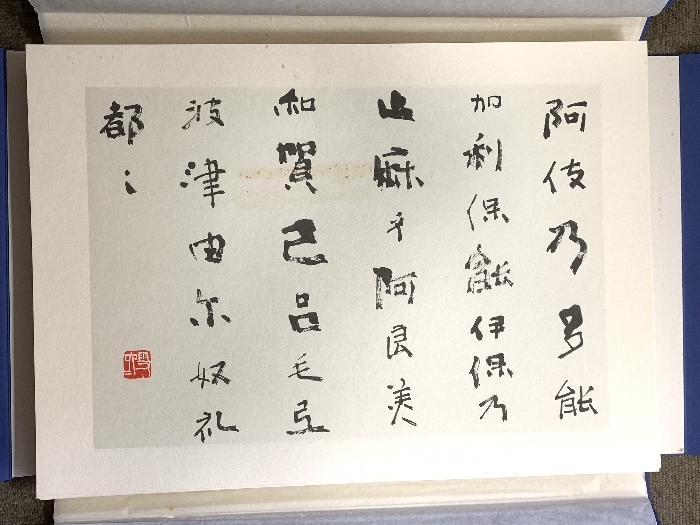 阿伎乃多能
加利保能伊保乃
止麻乎阿良美
和賀己呂毛弖
波津由尓奴礼
都〻